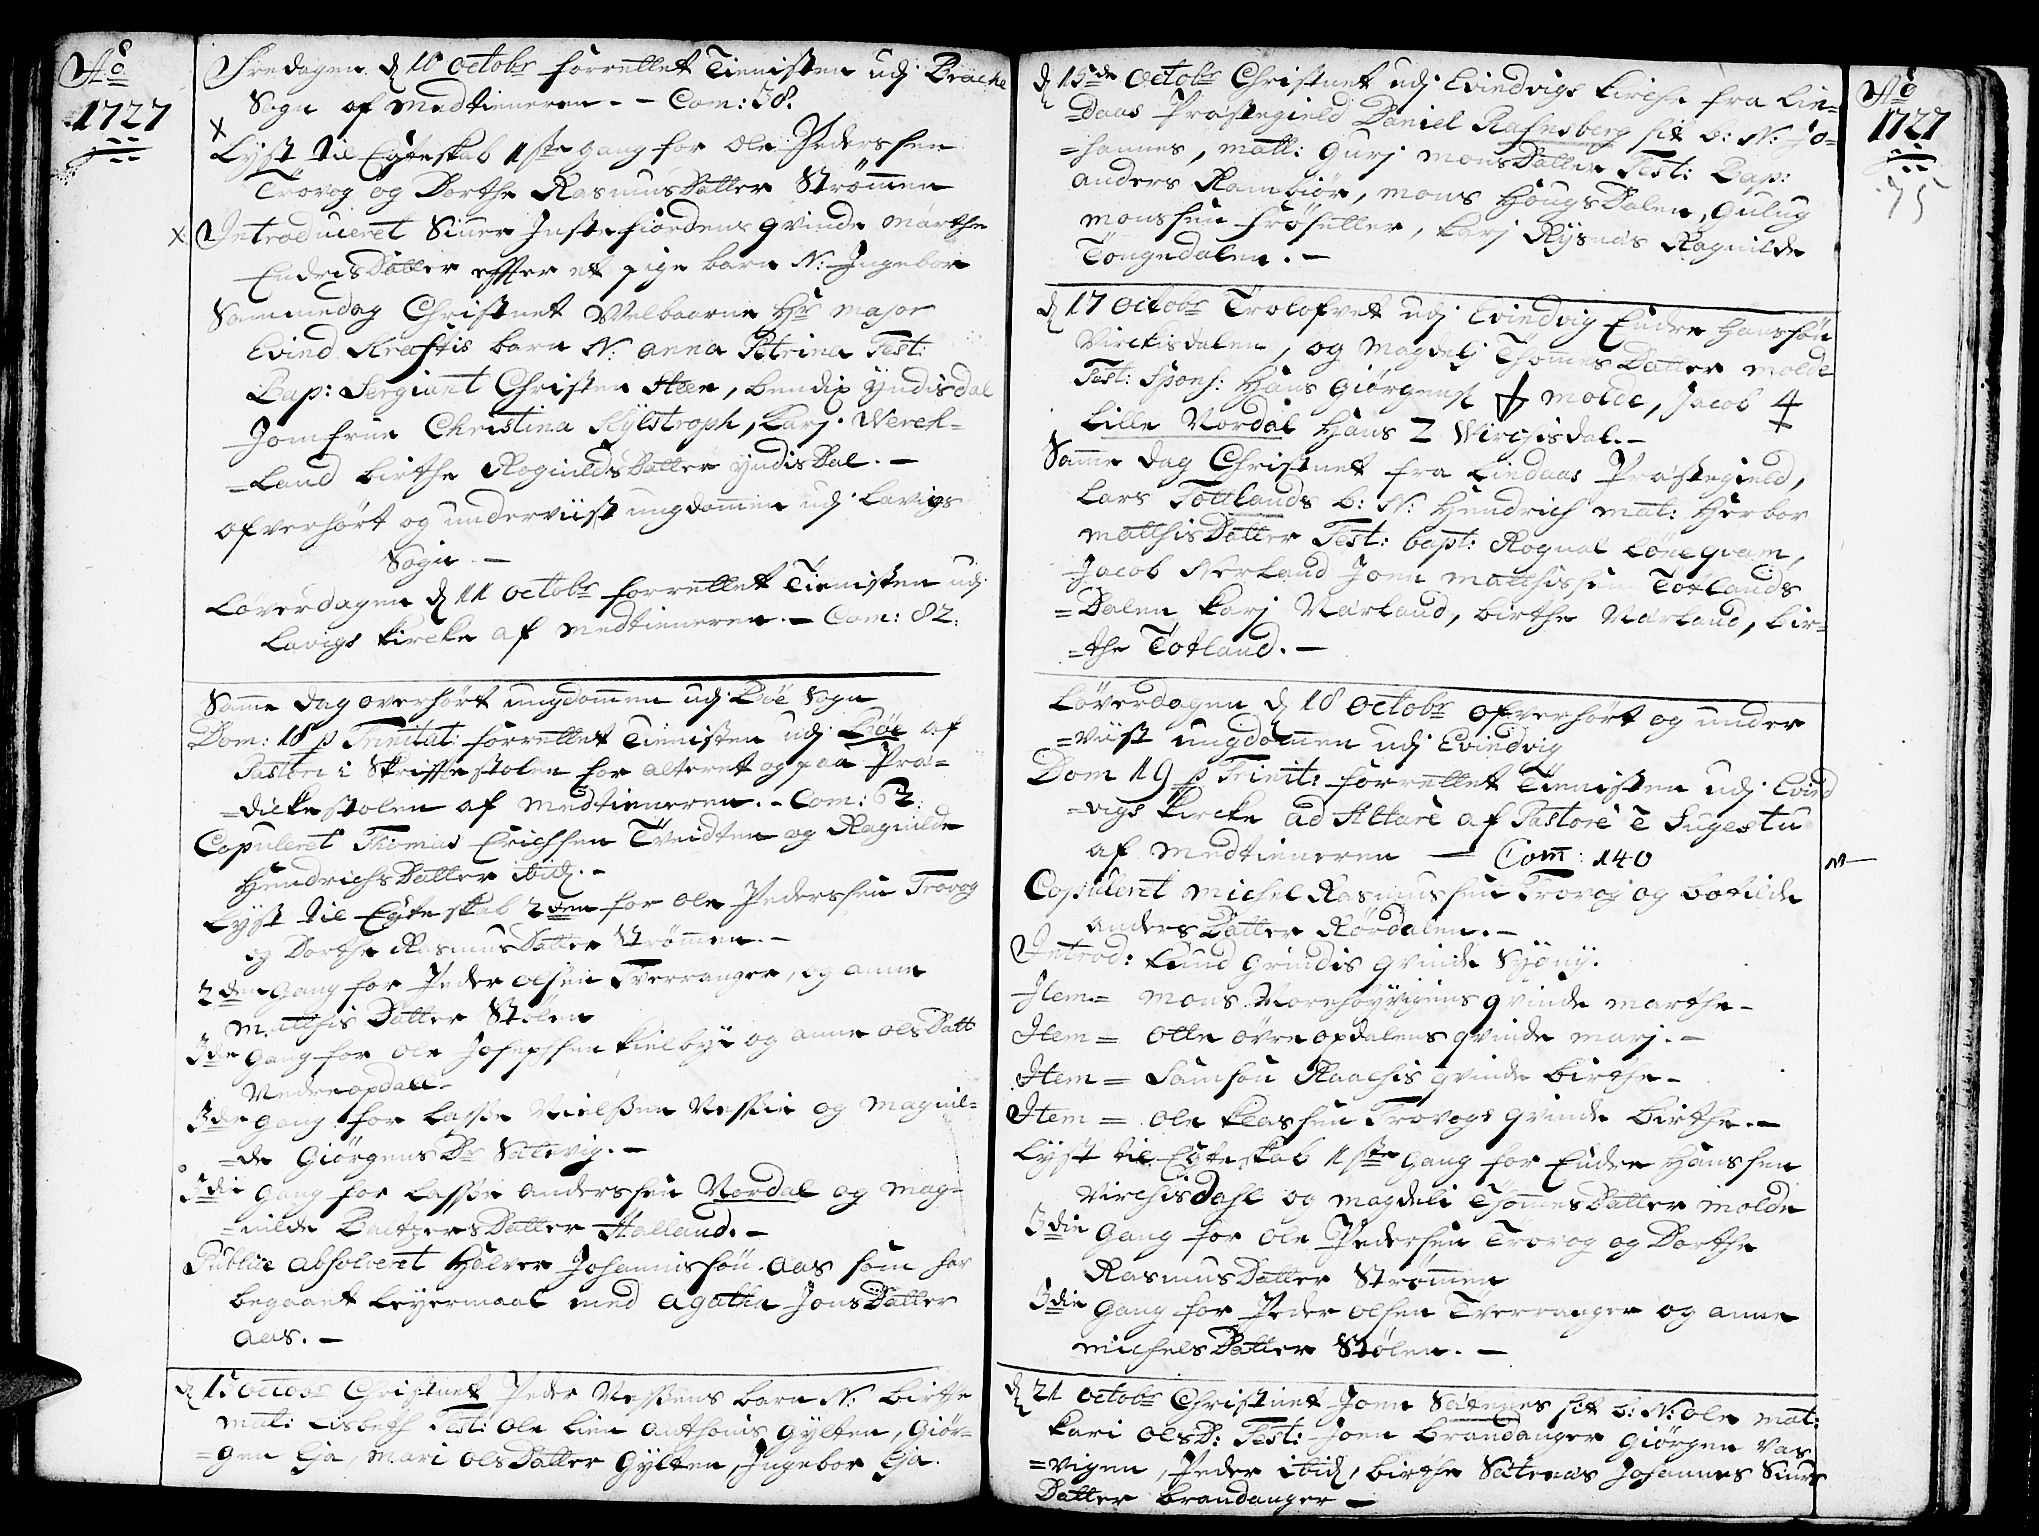 Aō
1727
Fredagen d 10 octobr forrettet Tienisten udj Bräche
Sogn af Medtieneren - - Com: 58.
x
Lyst til Egteskab 1ste gang for Ole Pederssen
Trovog og Dorthe RasmusDatter Strømmen
x Introduceret Siuer Instefiordens qvinde Marthe
EndrisDatter effter et pige barn N: Ingebor
Sammedag Christnet Welbaarne Hr Major
Evind Kreftis barn N: Anna Petrina Test:
Bap: Sergiant Christen Steen, bendix Yndisdal
Jomfrue Christina Kylstroph, Karj Werek-
-land birthe RagnildsDatter YndisDal. -
Ofverhørt og underviist ungdommen udj Lavigs
Sogn -
Løverdagen d 11 octobr forrettet Tienisten udj
Lavigs Kircke af Medtieneren. - Com: 82.
Samme dag overhørt ungdommen udj Böe Sogn
Dom: 18 p Trinitat: forrettet Tienisten udj Böe af
Pastore i Skrifftestolen for alteret og paa Præ-
-dickestolen af Medtieneren. - Com: 62.
Copuleret Thomas Erichssen Tveidten og Ragnilde
HendrichsDatter ibid. -
Lyst til Egteskab 2den for Ole Pederssen Trovog
og Dorthe RasmusDatter Strømmen. -
2den gang for Peder Olsen Tverranger, og anne
Matthis Datter Stølen
3die gang for Ole Josephsen Kielbye og anne olsDatt
Nedreopdall -
3die gang for Lasse Nielssen Nessie og Magnil-
-de Giörgens Dr Sätevig. -
3die gang for Lasse anderssen Nordal og Mag-
-nilde BaltzersDatter Halland. -
Publice absolveret Halvor Johannissön Aas som har
begaaet Leyermaal med Agatha JonsDatter
Aas. -
d 15 octobr Christnet Peder Nessens barn N: birthe
mat: Lisbeth Test: Ole Lien Anthonis Gylten, Giör-
-gen Eja, Mari olsDatter Gylten, Ingebor Eja.
d 15de octobr Christnet udj Evindvigs Kirche fra Lin-
-daas Præstegield Daniel Rafnsberg sit b: N: Jo-
-hannes, matt: Gurj MonsDatter Test: Bap:
Anders Rambiör, Mons HougsDalen, Gulug
Monssen fröseller, Karj Rysnäs Ragnilde
Tongedalen. -
d 17 octobr Trolofvet udj Evindvig Endre Hanssön
Virckisdalen, og Magdeli ThommesDatter Molde
Test: Spons: Hans Giörgens Molde, Jacob
Lille Nordal Hans 2 Wirchisdal. -
Samme dag Christnet fra Lindaas Præstegield,
Lars Totlands b: N: Hendrich mat: Herbor
MatthisDatter Test: bapt: Rognal Löneqvam,
Jacob Nerland Jonn Matthissen Totlands
-Dalen Karj Närland, birthe Närland, bir-
-the Totland. -
Løverdagen d 18 octobr ofverhørt og under
-viist ungdommen udj Evindvig
Dom 19 p Trinit: forrettet Tienisten udj Evind
-vigs Kircke ad Altare af Pastore è Sugestu
af Medtieneren — Com: 140
Copuleret Michel Rasmussen Trovog og botilde
AndersDatter Rördalen. -
Introd: Knud Grindis qvinde Syöny.
Item = Mons Norehöyvigens qvinde Marthe -
Item = Otte övreopdalens qvinde Marj. -
Item = Samson Raachis qvinde birthe -
Item = Ole Klassen Trovogs qvinde birthe. -
Lyst til Egteskab 1ste gang for Endre Hanssen
Virchisdahl og Magdeli ThommesDatter Molde
3die gang for Ole Pedersen Trovog og Dorthe
RasmusDatter Strømmen
3die gang for Peder Olsen Tverranger og anne
MichelsDatter Stølen. -
d 21 octobr Christnet Joen Sätenes sit b: N: Ole mat:
Kari OlsD: Test: Joen Brandanger Giörgen Vas
-vigen, Peder ibid, birthe Sätenäs Johannes Siurs
Datter brandanger -
Aō
1727
75